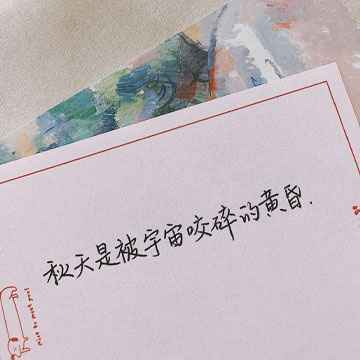 秋天是被宇宙咬碎的黄昏.